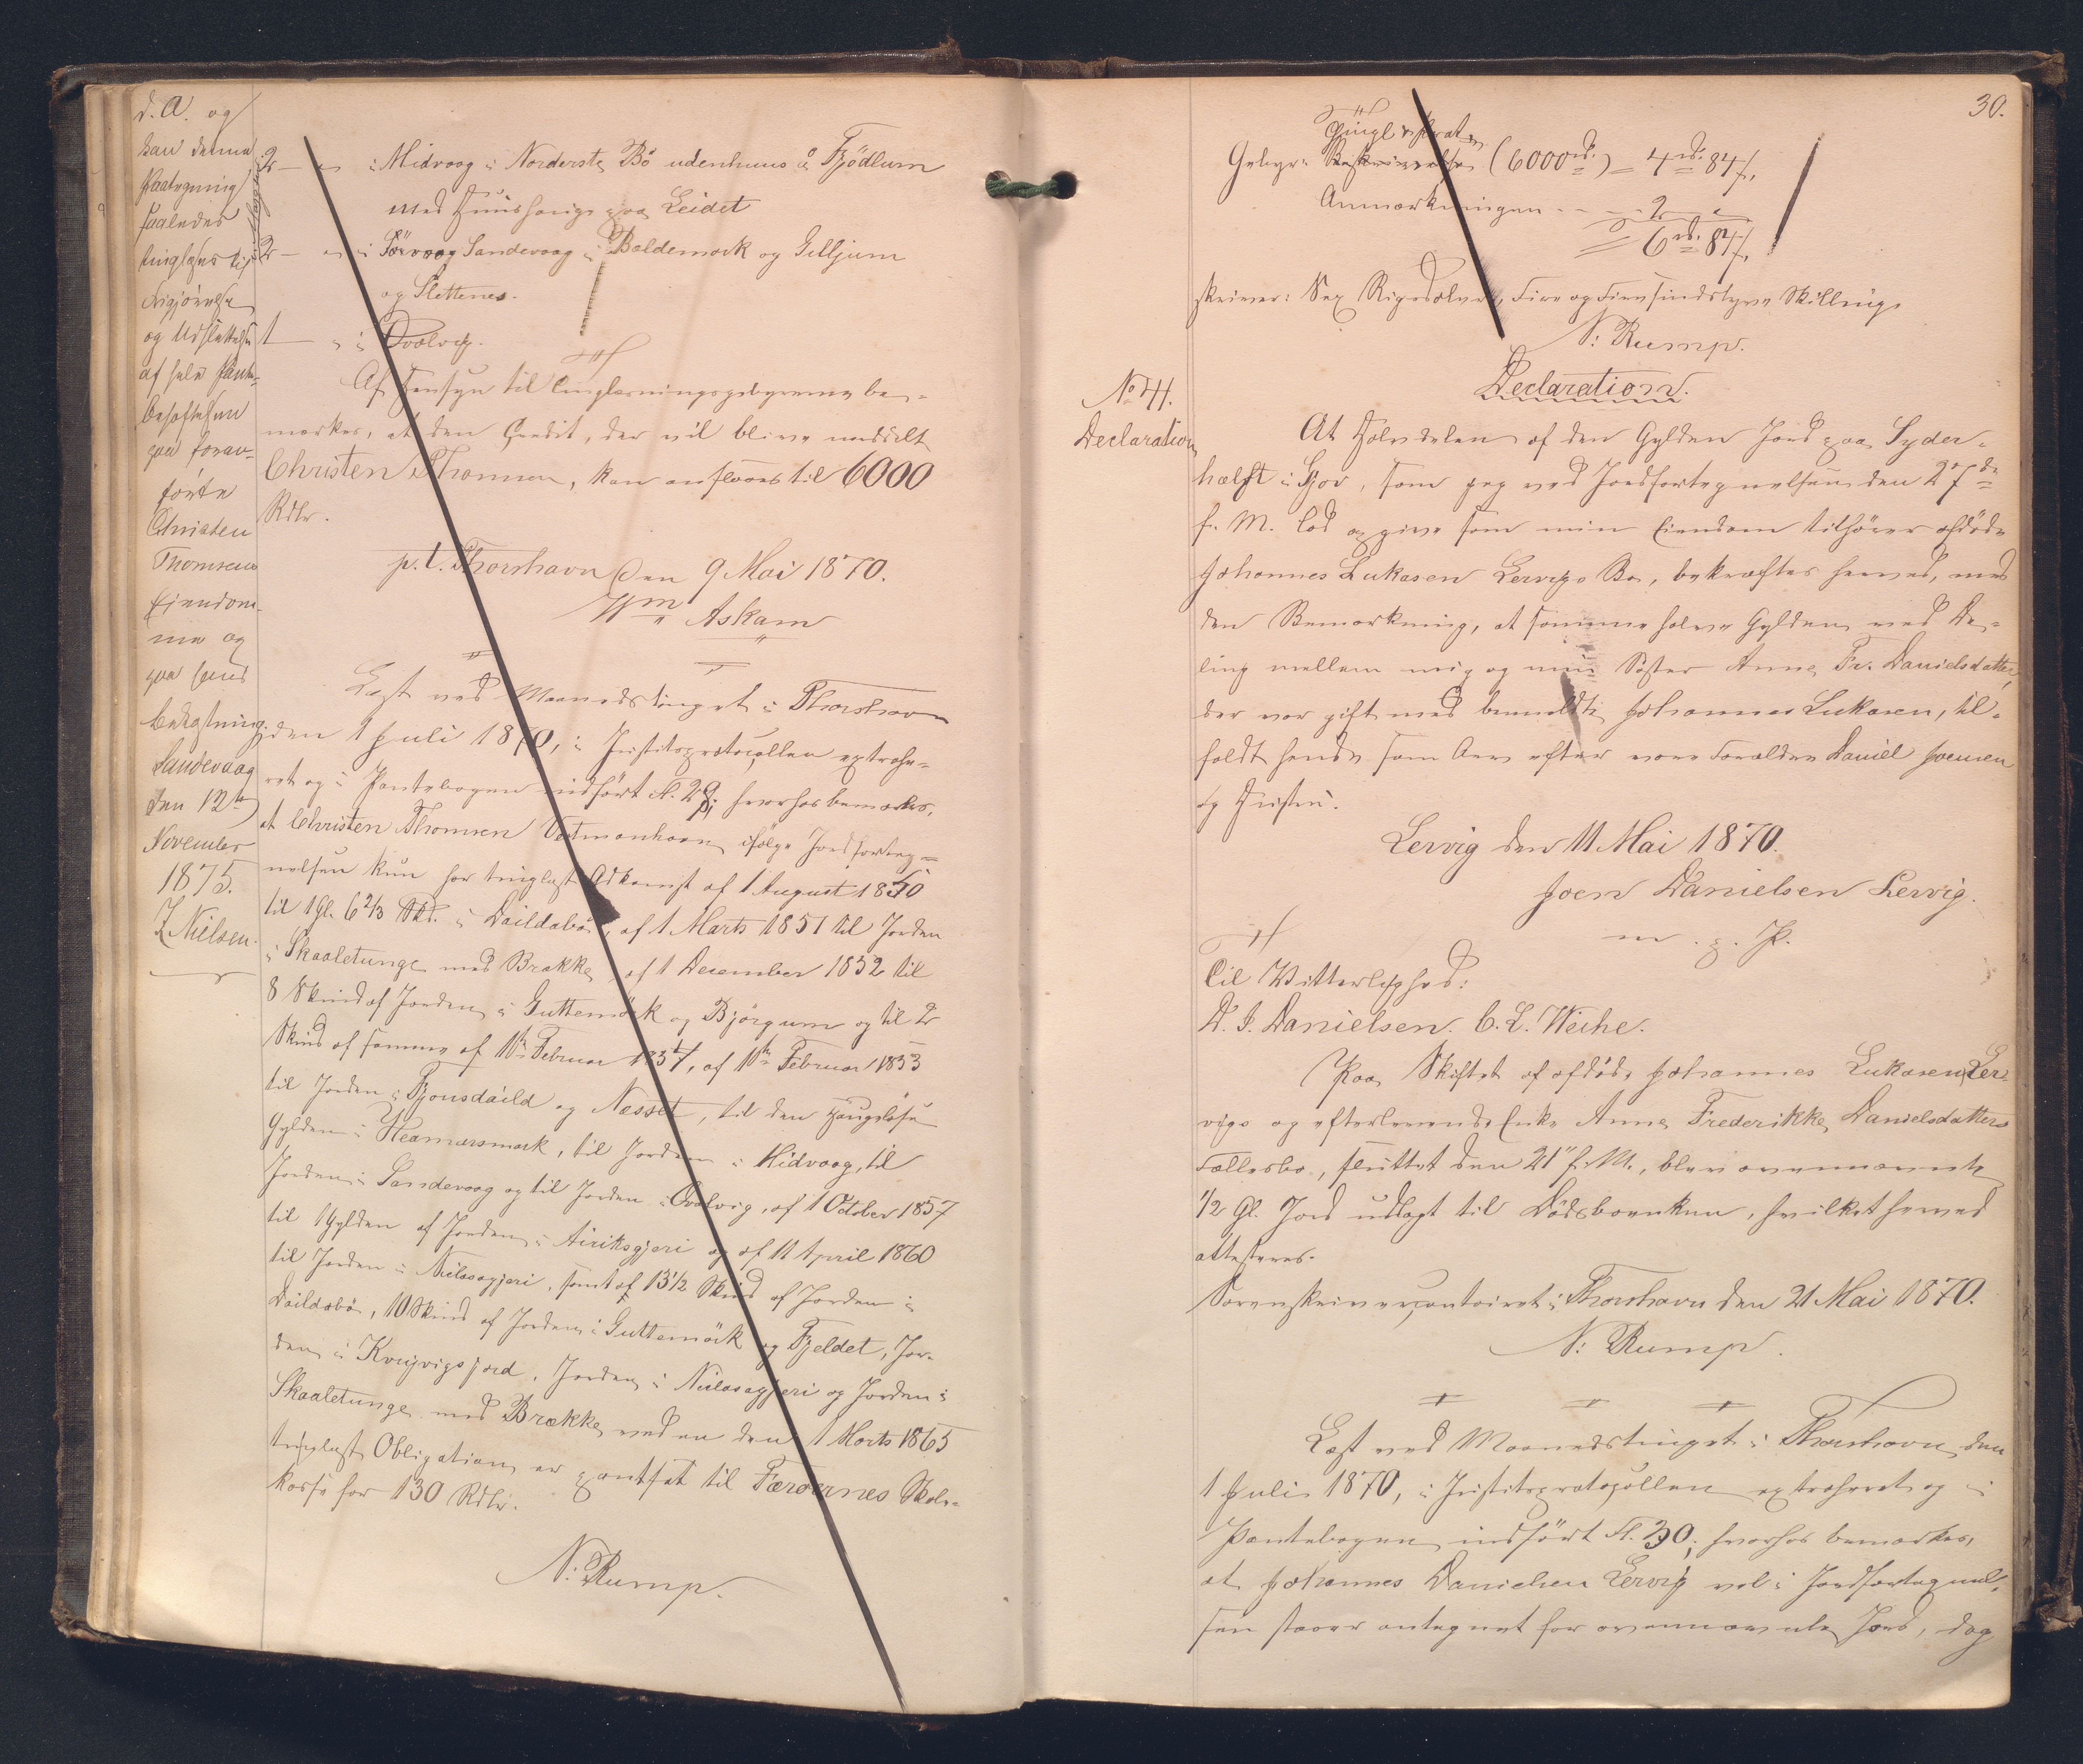 d. A. og
kan denne
Paategning
saaledes
tinglæses til
Frigjørelse
og Udslettelse
af hele Pante-
behæftelsen
paa foran-
førte
Christen
Thomsens
Eiendom-
me og
paa hans
Bekostning.
Sandevaag
den 12te
November
1875.
Z Nielsen.
2 — " i Midvaag i Norderste Bö udenhuus å Fjödlum
med Huushauge paa Leidet
2 — " i Sörvaag Sandevaag i Baldemark og Gilljum
og Slettenes.
1 — " i Qvalvig.
Af Hensyn til Tinglæsningsgebyrerne be-
mærkes, at den Credit, der vil blive meddelt
Christen Thomsen, kan ansættes til 6000
Rdlr.
p. t. Thorshavn den 9 Mai 1870.
Wm Askam
Læst ved Maanedstinget i Thorshavn
den 1 Juli 1870, i Justitsprotocollen extrahe-
ret og i Pantebogen indført fl. 29; hvorhos bemærkes,
at Christen Thomsen Vestmanhavn ifølge Jordforteg-
nelsen kun har tinglæst Adkomst af 1 August 1850
til 1 Gl. 6 2/3 Skd. i Daildabö, af 1 Marts 1851 til Jorden
i Skaaletunge med Brække, af 1 December 1852 til
8 Skind af Jorden i Guttemörk og Björgum og til 2
Skind af samme af 11te Februar 1857, af 11te Februar 1853
til Jorden i Fjonsdaild og Næsset, til den haugeløse
Gylden i Heamarsmark, til Jorden i Midvaag, til
Jorden i Sandevaag og til Jorden i Qvalvig, af 1 October 1857
til 1 Gylden af Jorden i Airiksgjeri og af 11 April 1860
til Jorden i Nielsagjeri, samt af 13 1/2 Skind af Jorden i
Daildabö, 10 Skind af Jorden i Guttemörk og Fjeldet, Jor-
den i Kvijvigsjord, Jorden i Nielsagjeri og Jorden i
Skaaletunge med Brække ved en den 1 Marts 1865
tinglæst Obligation er pantsat til Færøernes Skole-
kasse for 130 Rdlr.
N: Rump.
30.
Tinglæsnings
Gebyr: Beskrivelse (6000 rd.) = 4 rd. 84 s,
Anmærkningen - - - 2 - "
= 6 rd. 84 s,
skriver: Sex Rigsdaler, Fire og Fiirsindstyve Skilling.
N: Rump.
No 41.
Declaration
Declaration.
At Halvdelen af den Gylden Jord paa Syder-
hælft i Gjov, som jeg ved Jordfortegnelsen den 27de
f. M. lod opgive som min Eiendom tilhører afdøde
Johannes Lukasen Lervigs Bo, bekræftes herved, med
den Bemærkning, at samme halve Gylden ved De-
ling mellem mig og min Søster Anne Fr. Danielsdatter,
der var gift med bemeldte Johannes Lukasen, til-
faldt hende som Arv efter vore Forældre Daniel Joensen
og Hustru.
Lervig den 11 Mai 1870.
Joen Danielsen Lervig.
m. p. P.
Til Vitterlighed:
D. J. Danielsen. C. L. Weihe.
Paa Skiftet af afdøde Johannes Lukasen Ler-
vigs og efterlevende Enke Anne Frederikke Danielsdatters
Fællesbo, sluttet den 21" f. M., blev ovennævnte
1/2 Gl. Jord udlagt til Dødsboenken, hvilket herved
attesteres.
Sorenskrivercontoiret i Thorshavn den 21 Mai 1870.
N: Rump.
Læst ved Maanedstinget i Thorshavn den
1 Juli 1870, i Justitsprotocollen extraheret og i
Pantebogen indført fl. 30; hvorhos bemærkes,
at Johannes Danielsen Lervig vel i Jordfortegnel-
sen staaer antegnet for ovennævnte Jord, dog